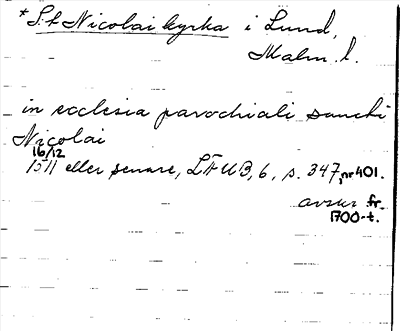 *S:t Nicolai kyrka i Lund,
Malm. l.
in ecclesia parochiali sancti
Nicolai
16/12
1511 eller senare, LÄUB, 6, s. 347, nr 401.
avskr. fr.
1700-t.